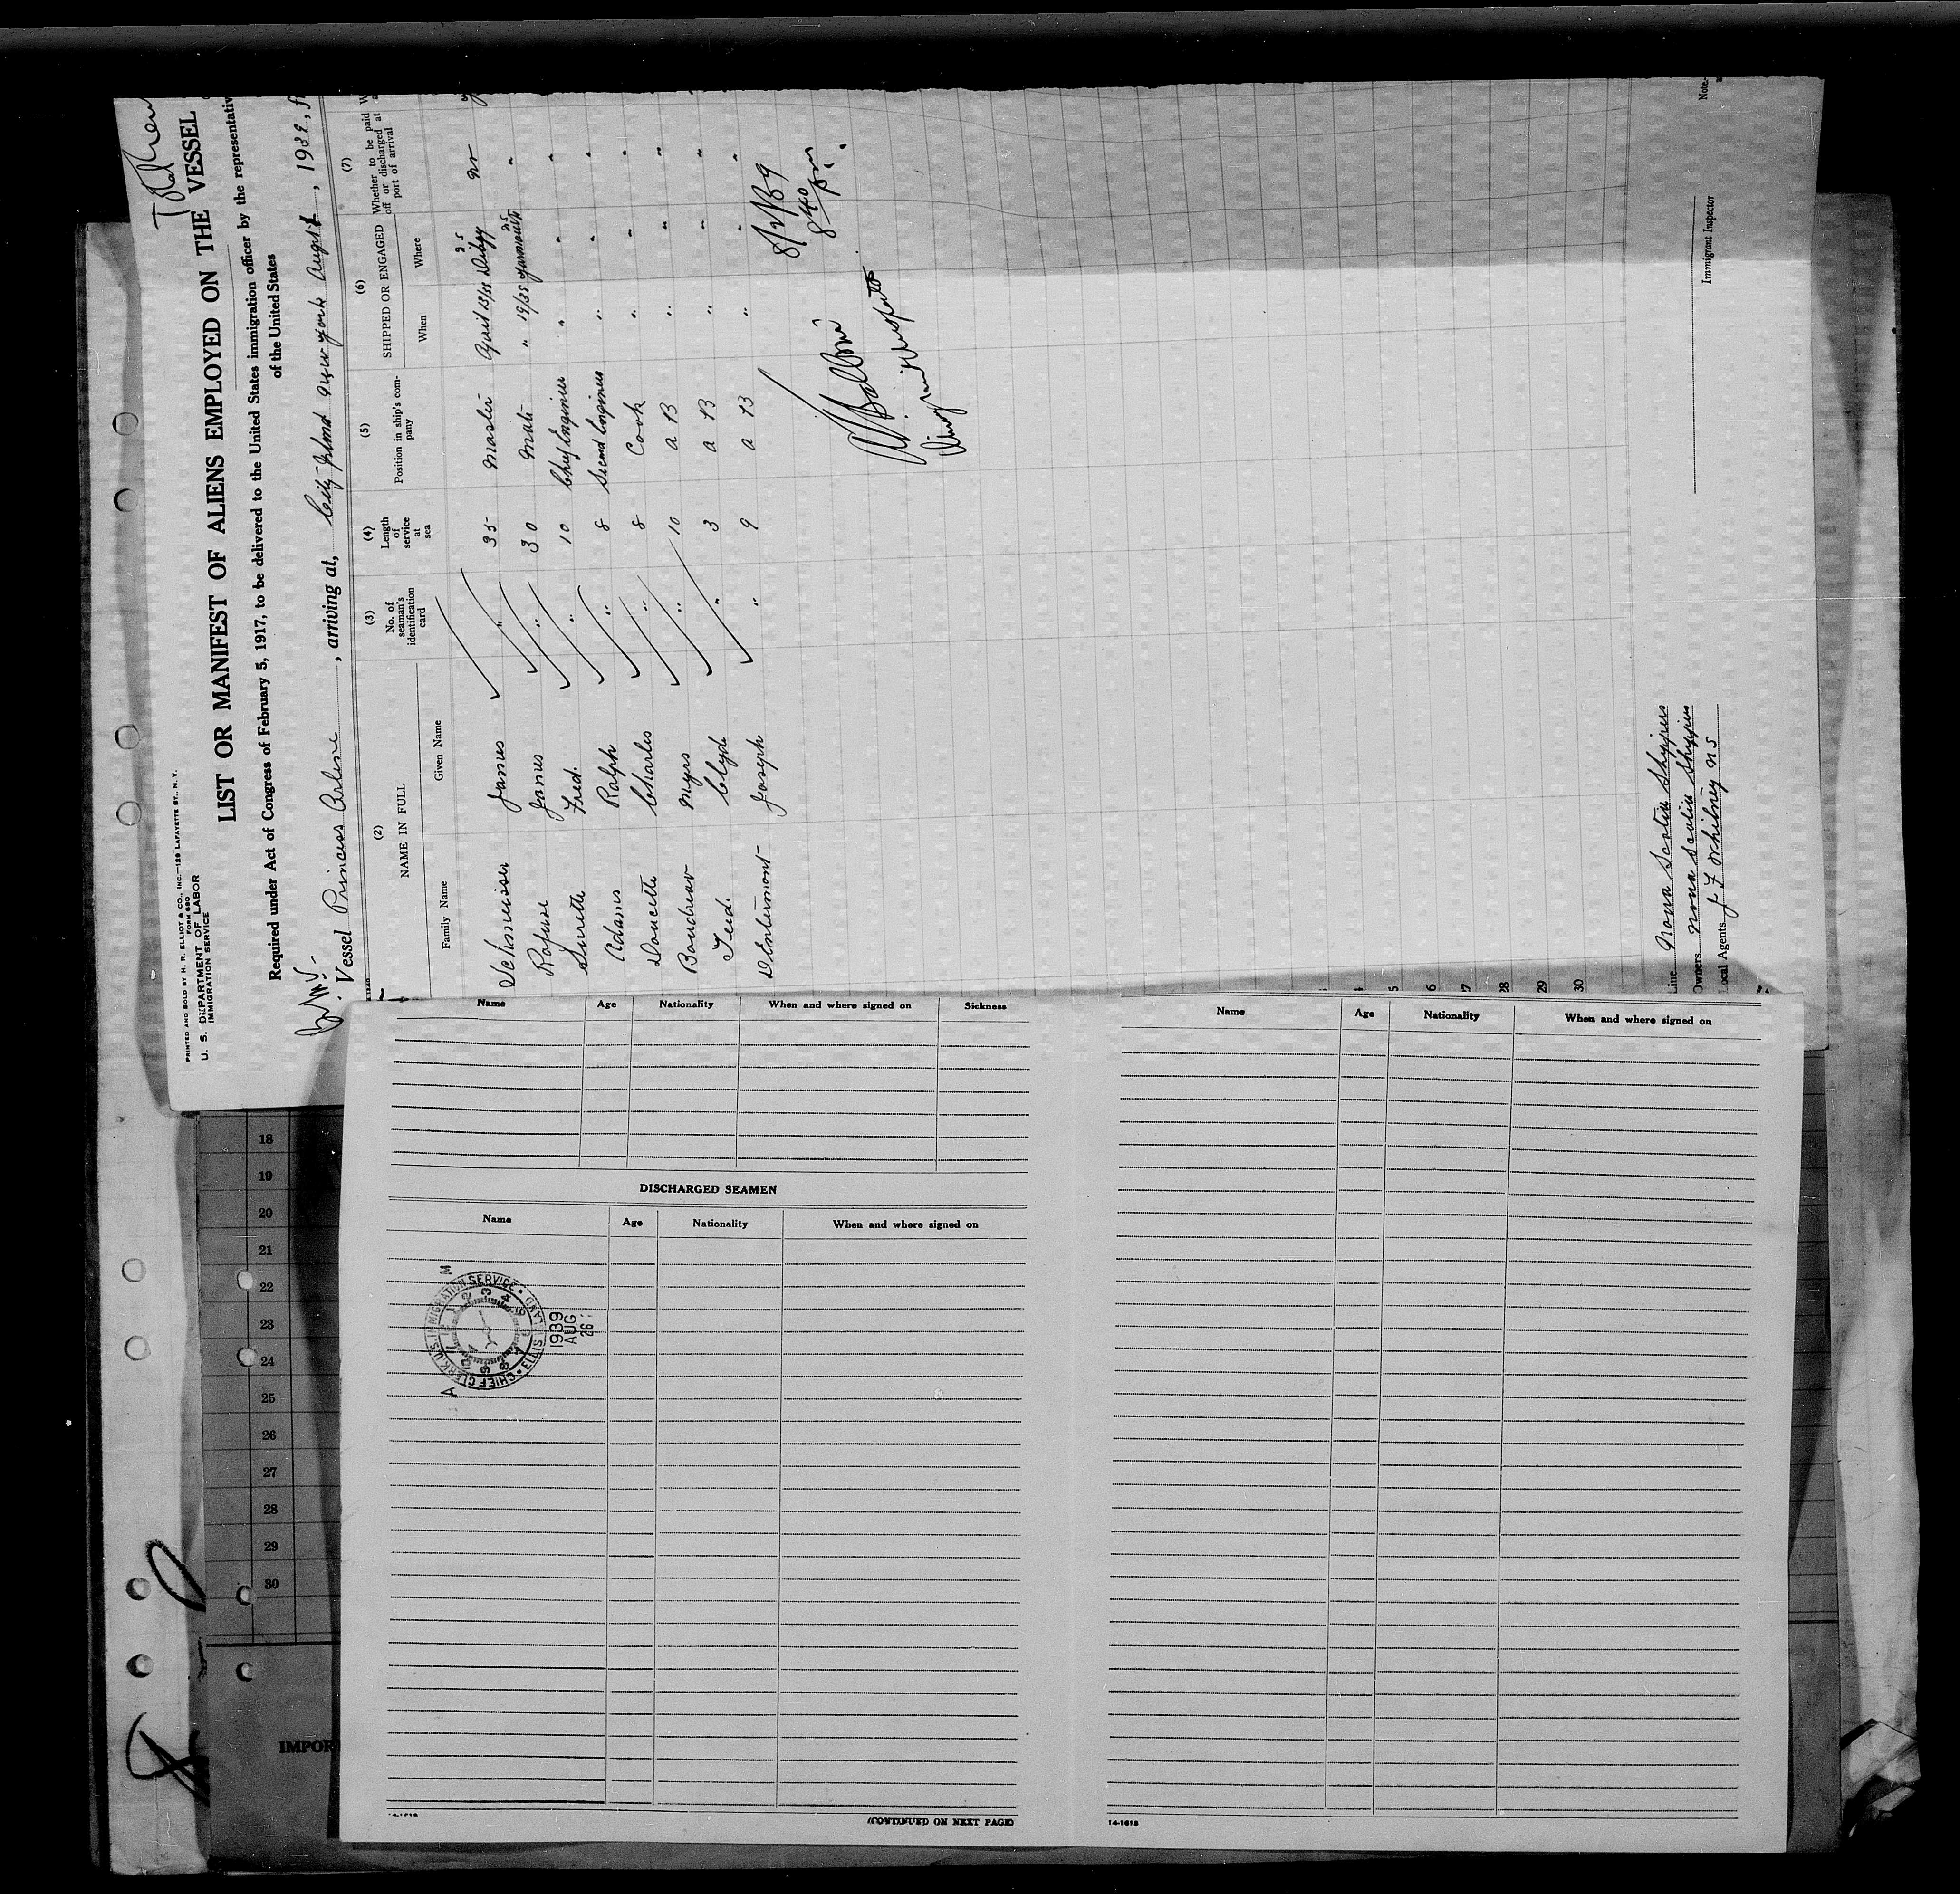 PRINTED AND SOLD BY H. R. ELLIOT & CO., INC.—129 LAFAYETTE ST., N. Y.
FORM 680
U. S. DEPARTMENT OF LABOR
IMMIGRATION SERVICE
LIST OR MANIFEST OF ALIENS EMPLOYED ON THE VESSEL
Required under Act of Congress of February 5, 1917, to be delivered to the United States immigration officer by the representativ
of the United States
Vessel Princess Arlene, arriving at, City Island New York August, 1939, f
(2) (3) (4) (5) (6) (7)
NAME IN FULL
Family Name Given Name
No. of seaman's identification card
Length of service at sea
Position in ship's com-pany
SHIPPED OR ENGAGED
When Where
Whether to be paid off or discharged at port of arrival
Schmeisser James 35 Master April 13/35 Digby no
Rafuse James " 30 Mate " 19/35 Yarmouth "
Surrette Fred. " 10 Chief Engineer " " "
Adams Ralph " 8 Second Engineer " " "
Doucette Charles " 8 Cook " " "
Boudreau Myrs " 10 A B " " "
Teed. Clyde " 3 A B " " "
D'Entremont Joseph " 9 A B " " "
8/2/39
840
28
29
30
Line Nova Scotia Shippers
Owners Nova Scotia Shippers
Local Agents J F Whitney NS
Immigrant Inspector
Note.-
Name Age Nationality When and where signed on Sickness
DISCHARGED SEAMEN
Name Age Nationality When and where signed on
CHIEF CLERK U.S. IMMIGRATION SERVICE • ELLIS ISLAND
A M
1939
AUG
26
(CONTINUED ON NEXT PAGE)
Name Age Nationality When and where signed on
14-1618
18
19
20
21
22
23
24
25
26
27
28
29
30
IMPOR